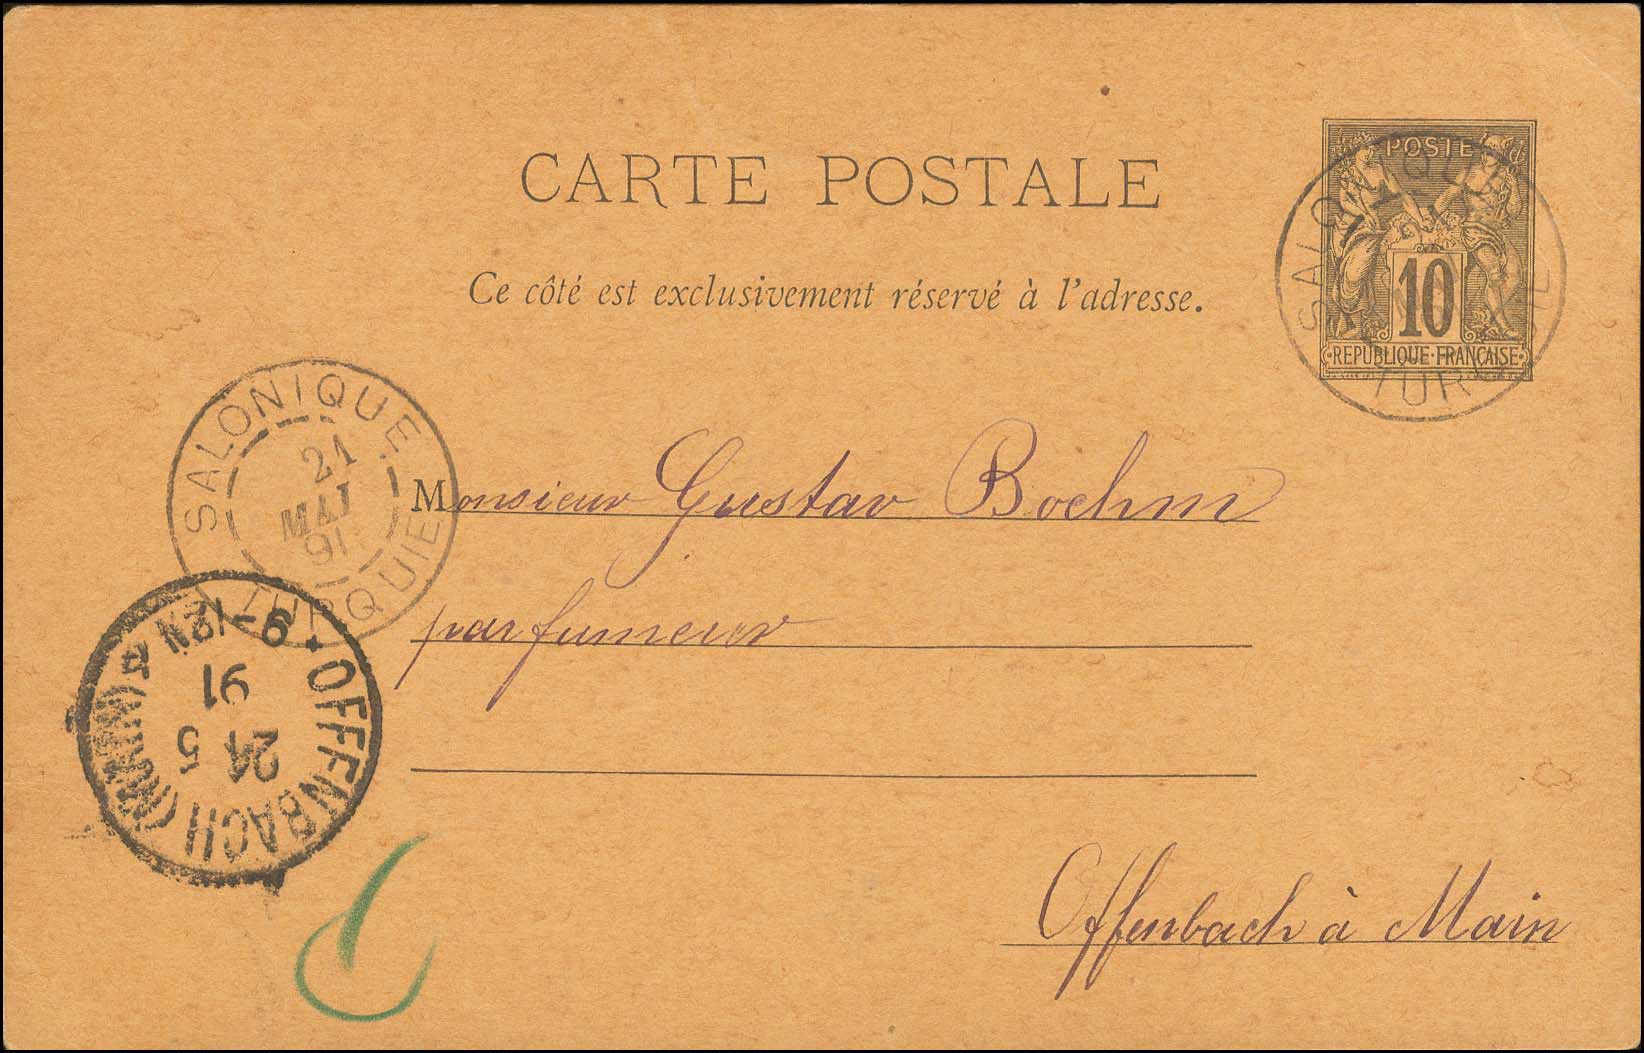 CARTE POSTALE
POSTE
10
REPUBLIQUE FRANÇAISE
SALONIQUE
TURQUIE
Ce côté est exclusivement réservé à l'adresse.
SALONIQUE
21
MAI
91
TURQUIE
Monsieur Gustav Boehm
parfumeur
OFFENBACH (MAIN)
24 5
91
9-12N
Offenbach à Main